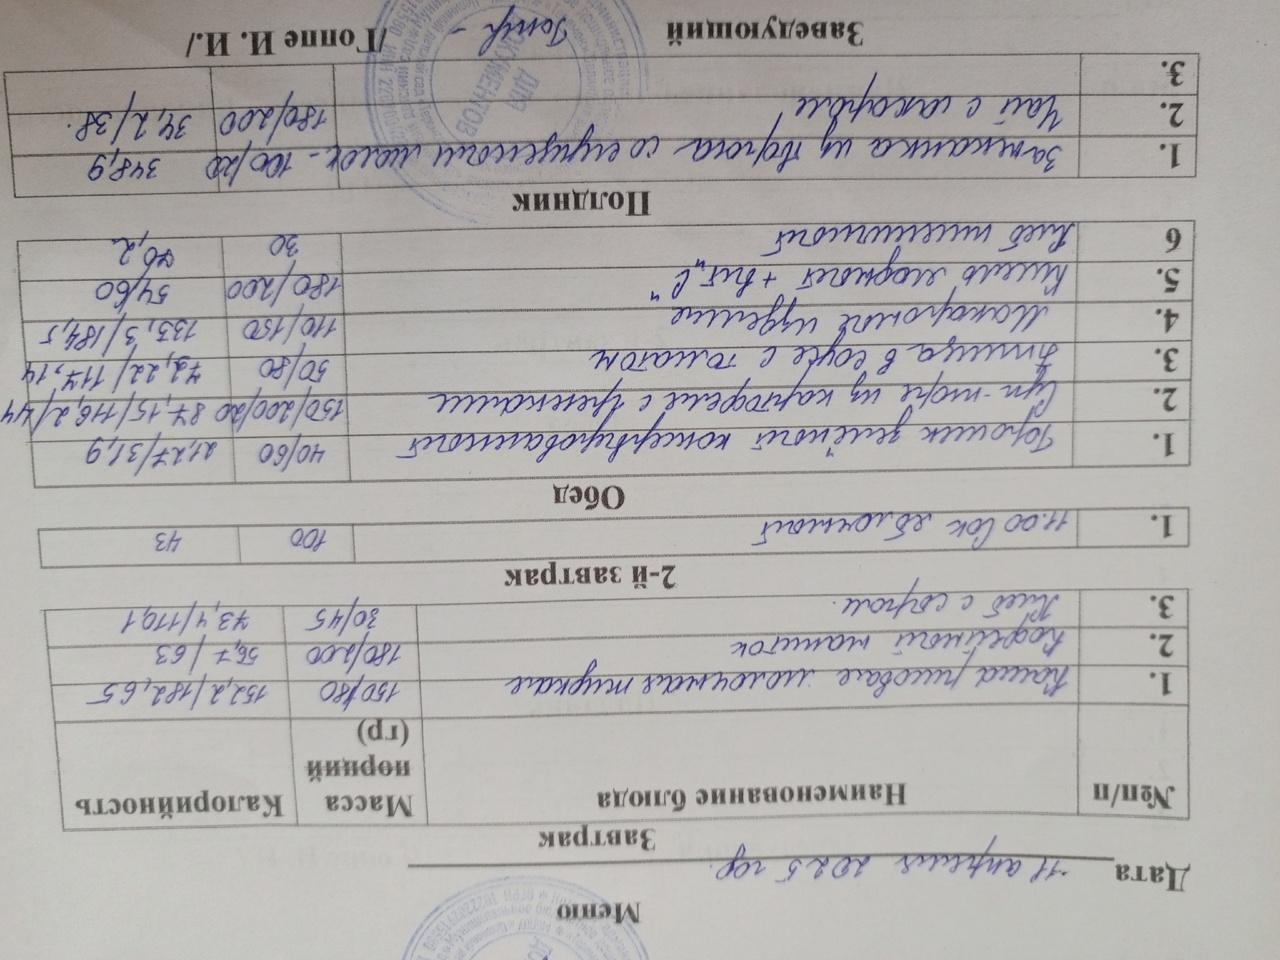 Меню
Дата 11 апреля 2025 год
Завтрак
№п/п Наименование блюда Масса порций (гр) Калорийность
1. Каша рисовая молочная жидкая 150/180 152,2/182,65
2. Кофейный напиток 180/200 56,7/63
3. Хлеб с сыром. 30/45 73,4/110,1
2-й завтрак
1. 11.00 Сок яблочный 100 43
Обед
1. Горошек зелёный консервированный 40/60 21,27/31,9
2. Суп-пюре из картофеля с гренками 150/200/20 87,15/116,2/44
3. Птица в соусе с томатом 50/80 73,22/117,14
4. Макаронные изделие 110/150 133,3/184,5
5. Кисель ягодный + вит "С" 180/200 54/60
6 Хлеб пшеничный 30 70,2
Полдник
1. Запеканка из творога со сгущенным молок- 100/20 348,9
2. Чай с сахаром 180/200 34,2/38.
3.
Заведующий /Гоппе И. И./
ДЛЯ ДОКУМЕНТОВ